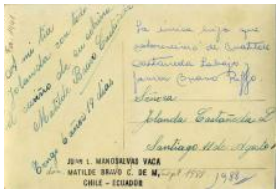 A mi tia
Jolanda con todo
el cariño de su sobrina
Matilde Bravo Castañeda
Tengo 6 años 19 dias
La única hija que
de Matilde
Castañeda Labajo y
Bravo Riffo.
Señora
Jolanda Castañeda L
Santiago 11 de Agosto
1988
JUAN L. MANOSALVAS VACA
MATILDE BRAVO C. DE M.
CHILE - ECUADOR